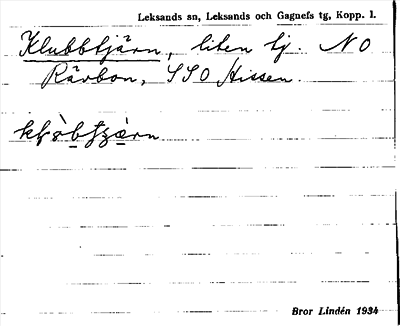 Leksands sn, Leksands och Gagnefs tg, Kopp. l.
Klubbtjärn, liten tj. NO
Rärbon, SSO Hissen.
Bror Lindén 1934